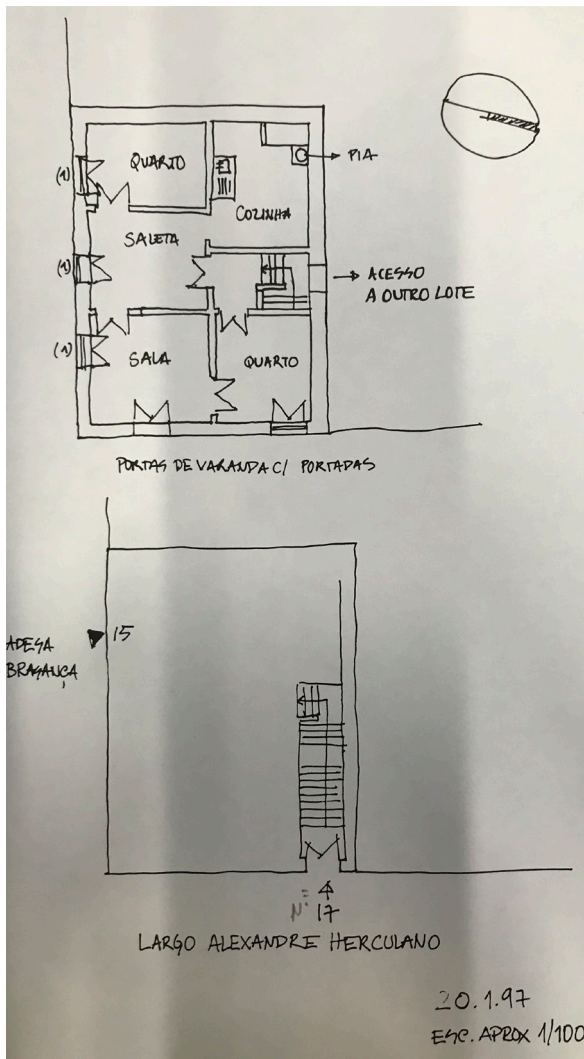 QUARTO
(1)
PIA
COZINHA
SALETA
(1)
ACESSO
A OUTRO LOTE
(1)
SALA
QUARTO
PORTAS DE VARANDA C/ PORTADAS
15
ADESA
BRAGANÇA
Nº 17
LARGO ALEXANDRE HERCULANO
20.1.97
ESC. APROX 1/100